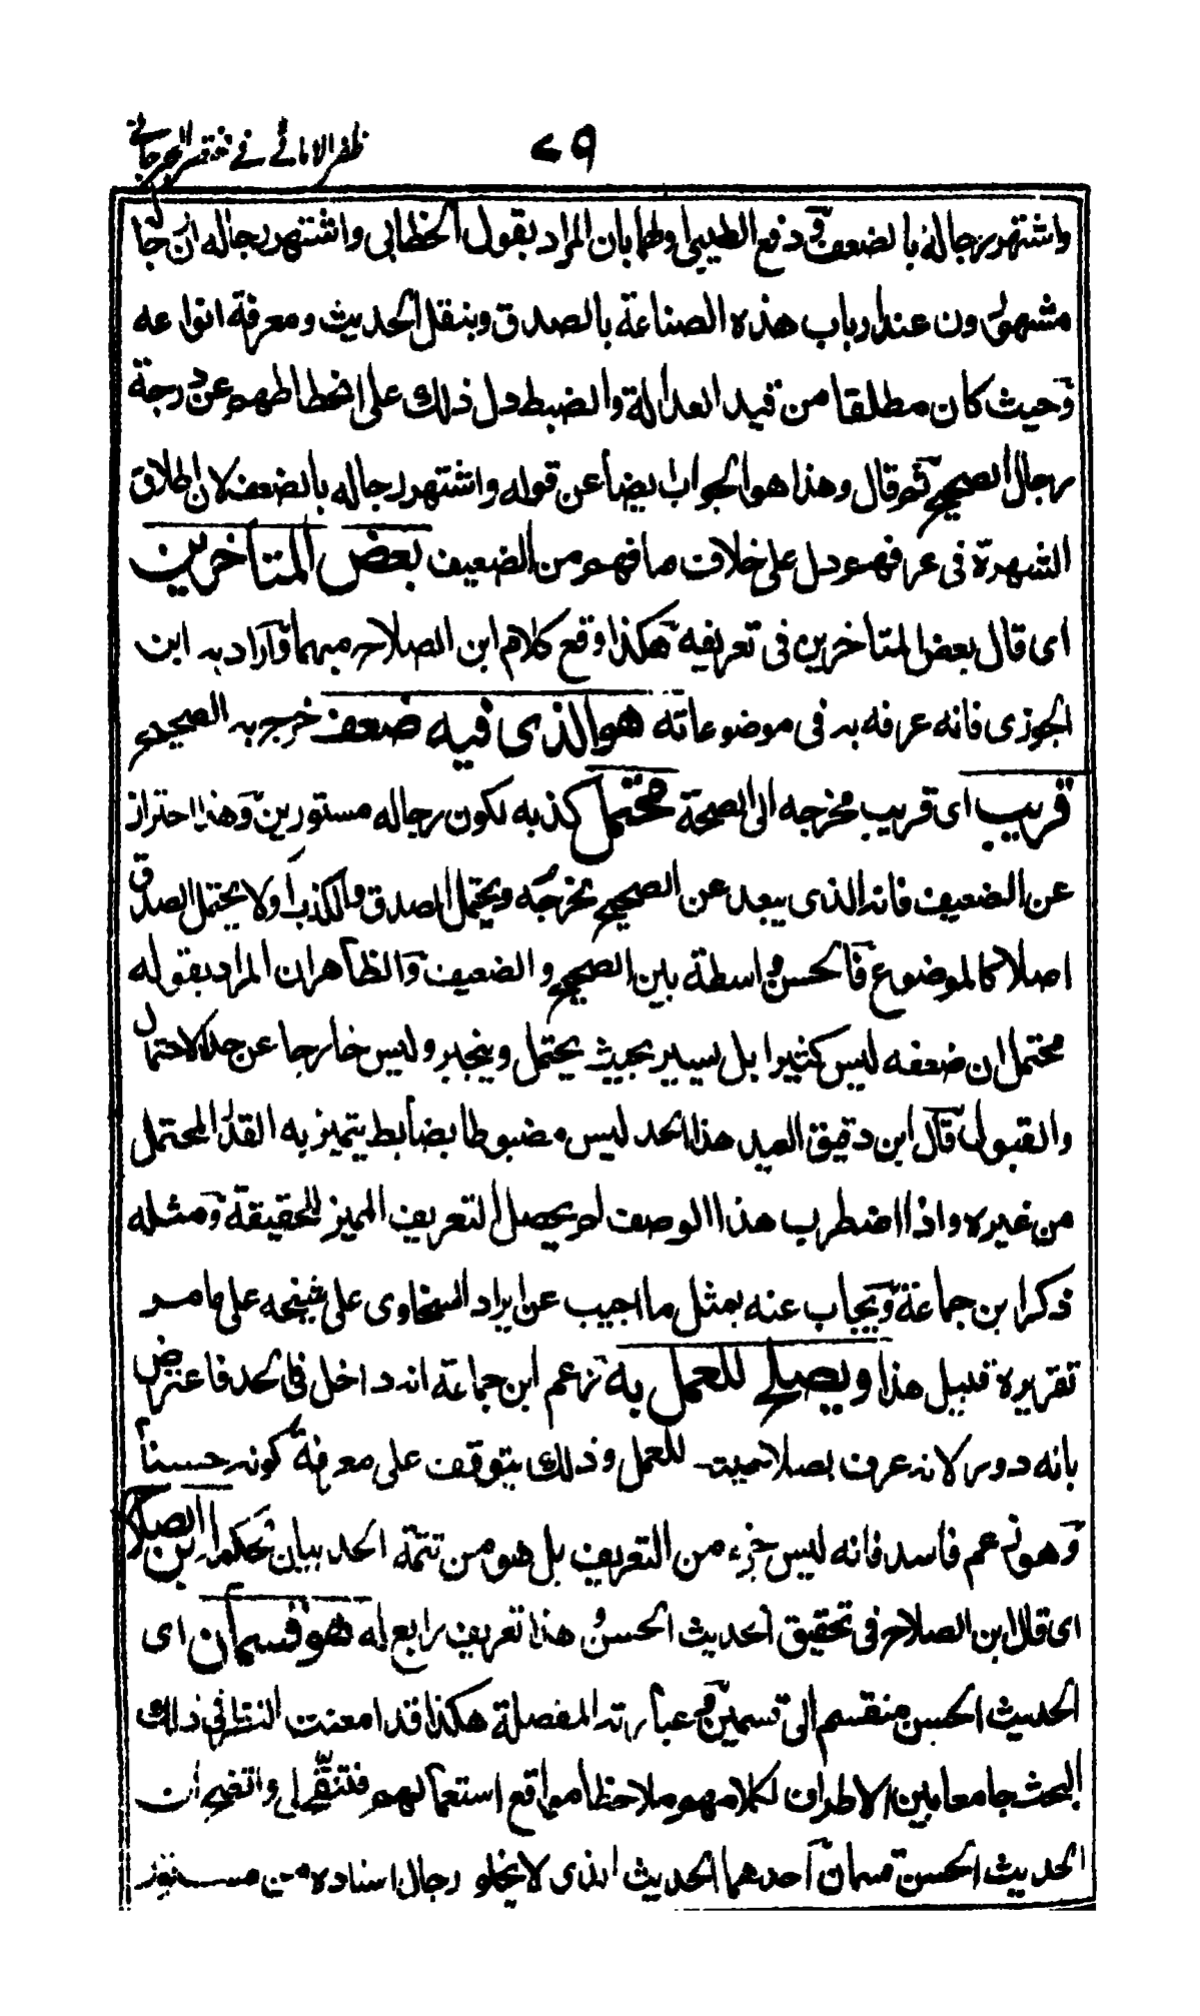 ظفر الامانی فی مختصر الجرجانی
٧٩
واشتهر رجاله بالضعف ودفع الطیبی اولهما بان المراد بقول الخطابی واشتهر رجاله ان رجاله
مشهورون عند ارباب هذه الصناعة بالصدق وبنقل الحدیث ومعرفة انواعه
وحیث كان مطلقا من قید العدالة والضبط دل ذلك علی انحطاطهم عن درجة
رجال الصحیح ثم قال وهذا هو الجواب ایضا عن قوله واشتهر رجاله بالضعف لان اطلاق
الشهرة فی عرفهم دل علی خلاف ما فهم من الضعیف بعض المتأخرین
ای قال بعض المتاخرین فی تعریفه هكذا وقع كلام ابن الصلاح مبهما وآراد به ابن
الجوزی فانه عرفه به فی موضوعاته هو الذی فیه ضعف خرج به الصحیح
قریب ای قریب مخرجه الی الصحة محتمل كذبه لكون رجاله مستورین وهذا احتراز
عن الضعیف فانه الذی یبعد عن الصحیح مخرجه ویحتمل الصدق والكذب اولا یحتمل الصدق
اصلا كالموضوع فالحسن واسطة بین الصحیح والضعیف والظاهر ان المراد بقوله
محتمل ان ضعفه لیس كثیرا بل یسیر بحیث یحتمل وینجبر ولیس خارجا عن حد الاحتمال
والقبول قال ابن دقیق العید هذا الحد لیس مضبوطا بضابط یتمیز به القدر المحتمل
من غیره واذا اضطرب هذا الوصف لم یحصل التعریف الممیز للحقیقة ومثله
ذكر ابن جماعة ویجاب عنه بمثل ما اجیب عن ایراد السخاوی علی شیخه علی ما مر
تقریره قبیل هذا ویصلح للعمل به زعم ابن جماعة انه داخل فی الحد فاعترض
بانه دور لانه عرف بصلاحیته للعمل وذلك یتوقف علی معرفة كونه حسنا
وهو زعم فاسد فانه لیس جزء من التعریف بل هو من تتمة الحد بیان لحكمه ابن الصلاح
ای قال ابن الصلاح فی تحقیق الحدیث الحسن وهذا تعریف رابع له هو قسمان ای
الحدیث الحسن منقسم الی قسمین وعبارته المفصلة هكذا قد امعنت النظر فی ذلك
البحث جامعا بین الاطراف لكلامهم ملاحظا مواقع استعمالهم فتنقح لی واتضح ان
الحدیث الحسن قسمان احدهما الحدیث الذی لا یخلو رجال اسناده من مستور